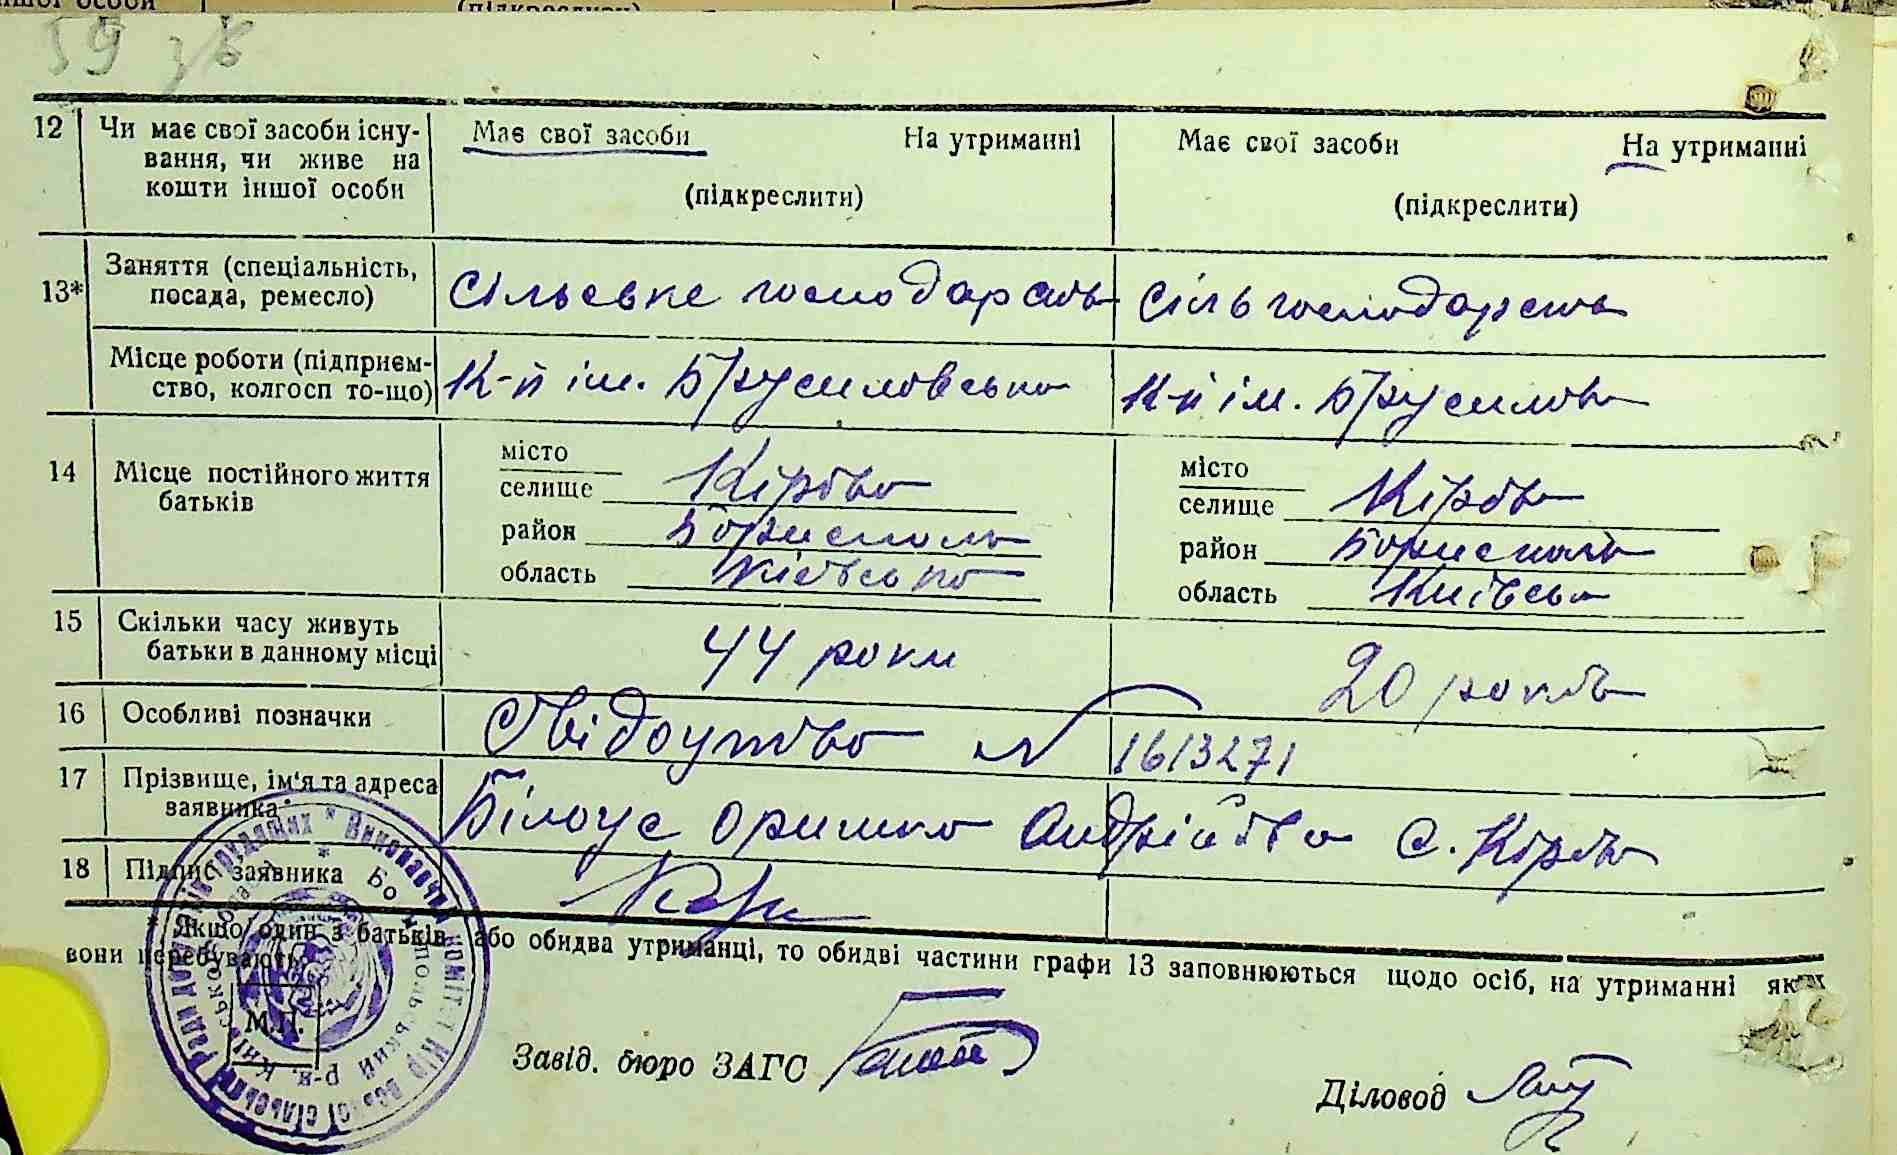 59 зв
12 Чи має свої засоби існу-
вання, чи живе на
кошти іншої особи
Має свої засоби На утриманні
(підкреслити)
Має свої засоби На утриманні
(підкреслити)
13* Заняття (спеціальність,
посада, ремесло)
Сільське господарств
Сільгосподарств
Місце роботи (підприєм-
ство, колгосп то-що)
К-п ім.
К-п ім.
14 Місце постійного життя
батьків
місто
селище Кірово
район Бориспол
область Київсько
місто
селище Кірово
район Бориспол
область Київсько
15 Скільки часу живуть
батьки в данному місці
44 роки
20 років
16 Особливі позначки
Свідоцтво N 1613271
17 Прізвище, ім'я та адреса
заявника
Білоус Оришка Андріївна с. Кірово
18 Підпис заявника
* Якщо один з батьків або обидва утриманці, то обидві частини графи 13 заповнюються щодо осіб, на утриманні яких
вони перебувають.
М.П.
Завід. бюро ЗАГС
Діловод